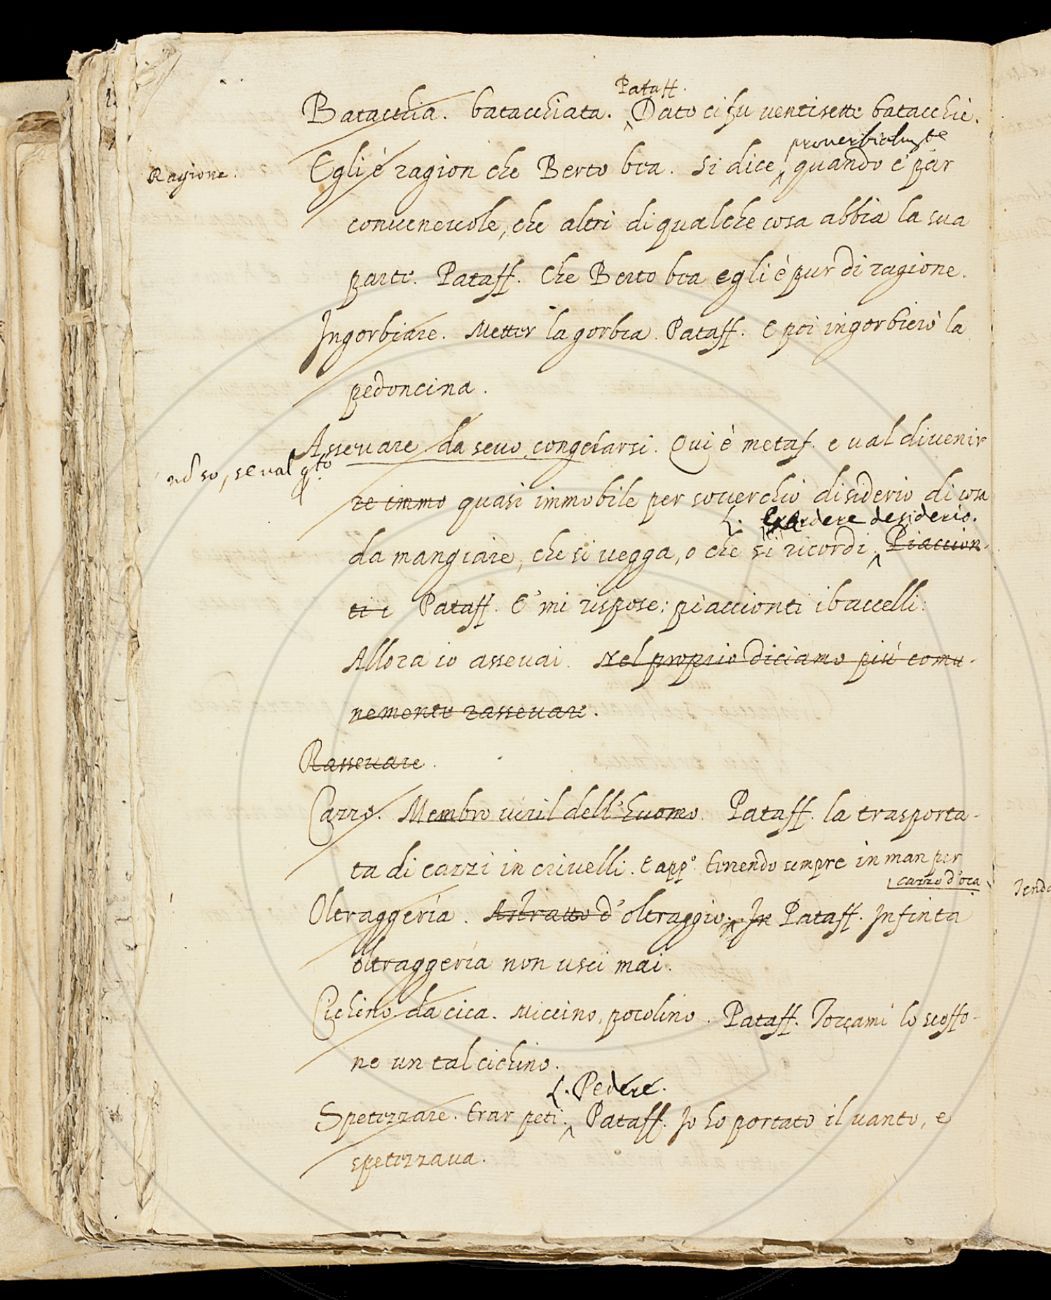 Pataff.
Batacchia. batacchiata. Dato ci fu ventisette batacchie.
proverbialmte
Ragione. Egli è ragion che Berto bea. Si dice, quando è pur
convenevole, che altri di qualche cosa abbia la sua
parte. Pataff. Che Berto bea egli è pur di ragione.
Ingorbiare. Metter la gorbia. Pataff. E poi ingorbierò la
pedoncina.
Assevare da sevo, congelarsi. Qui è metaf. e val divenir
re immo quasi immobile per soverchio disiderio di cosa
L. Exardere desiderio.
da mangiare, che si vegga, o che si ricordi. Piaccion-
ti i Pataff. E' mi rispose: piaccionti i baccelli:
Allora io assevai. Nel proprio diciamo più comu-
nemente rassevare.
Rassevare.
Cazzo. Membro viril dell'huomo. Pataff. la trasporta-
ta di cazzi in crivelli. E app.o tenendo sempre in man per
cazzo d'oca
Oltraggeria. Astratto d'oltraggio. In Pataff. Infinta
oltraggeria non uscì mai.
Cichino da cica. Miccino, pocolino. Pataff. Torçami lo scoffo-
ne un tal cichino.
L. Pedere.
Spetezzare. Trar peti. Pataff. Io ho portato il vanto, e
spetezzava.